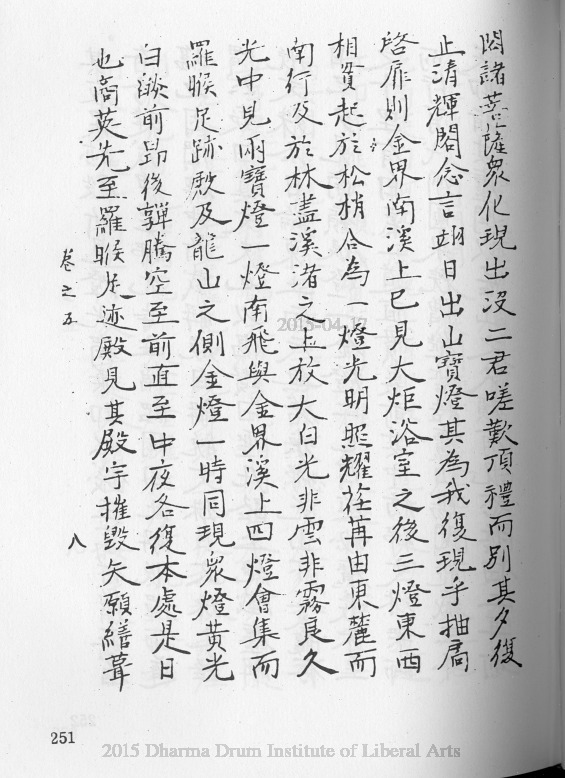 閎諸菩薩眾化現出沒二君嗟歎頂禮而別其夕復
止清輝閣念言翊日出山寶燈其為我復現乎抽扃
啓扉則金界南溪上已見大炬浴室之後三燈東西
相貫起於松梢合為一燈光明照耀荏苒由東麓而
南行及於林盡溪渚之上放大白光非雲非霧良久
光中見兩寶燈一燈南飛與金界溪上四燈會集而
羅睺足跡殿及龍山之側金燈一時同現眾燈黃光
白燄前昂後嚲騰空至前直至中夜各復本處是日
也商英先至羅睺足迹殿見其殿宇摧毀矢願繕葺
卷之五
八
251
2015-04-17
2015 Dharma Drum Institute of Liberal Arts